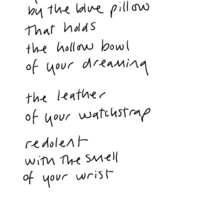 by the blue pillow
that holds
the hollow bowl
of your dreaming
the leather
of your watchstrap
redolent
with the smell
of your wrist